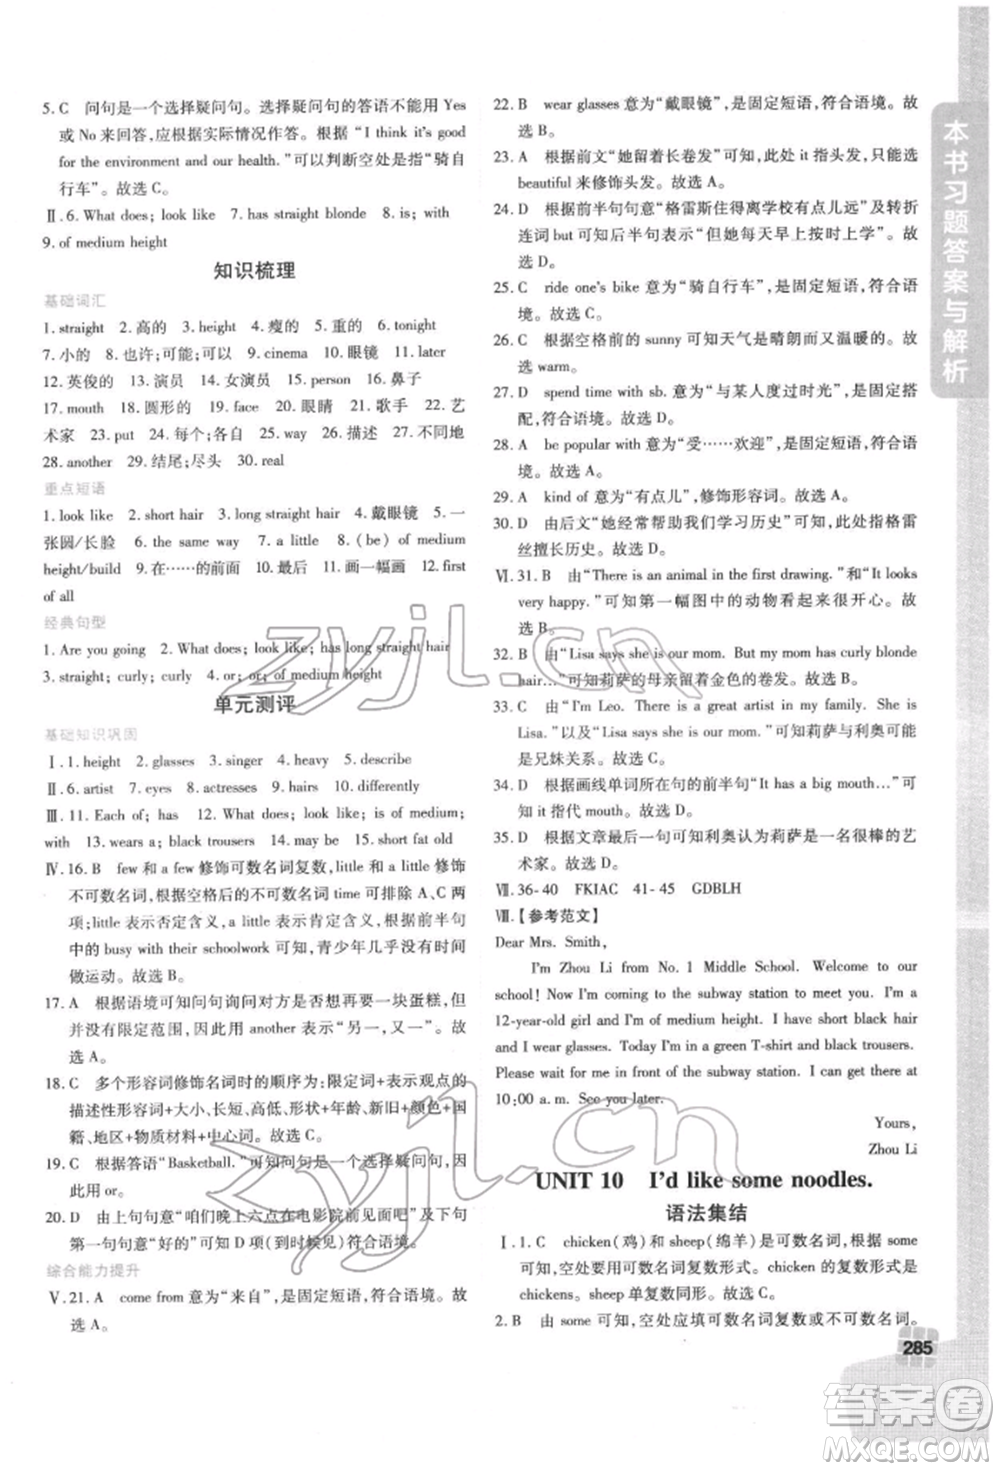 5. C　问句是一个选择疑问句。选择疑问句的答语不能用 Yes
或 No 来回答,应根据实际情况作答。根据“I think it's good
for the environment and our health.”可以判断空处是“骑自
行车”。故选 C。
Ⅱ. 6. What does; look like　7. has straight blonde　8. is; with
9. of medium height
知识梳理
基础词汇
1. straight　2. 高的　3. height　4. 瘦的　5. 重的　6. tonight
7. 小的　8. 也许;可能;可以　9. cinema　10. 眼镜　11. later
12. 英俊的　13. 演员　14. 女演员　15. person　16. 鼻子
17. mouth　18. 圆形的　19. face　20. 眼睛　21. 歌手　22. 艺
术家　23. put　24. 每个;各自　25. way　26. 描述　27. 不同地
28. another　29. 结尾;尽头　30. real
重点短语
1. look like　2. short hair　3. long straight hair　4. 戴眼镜　5. 一
张圆/长脸　6. the same way　7. a little　8. (be) of medium
height/build　9. 在……的前面　10. 最后　11. 画一幅画　12. first
of all
经典句型
1. Are you going　2. What does; look like; has long straight hair
3. straight; curly; curly　4. or; or; of medium height
单元测评
基础知识巩固
Ⅰ. 1. height　2. glasses　3. singer　4. heavy　5. describe
Ⅱ. 6. artist　7. eyes　8. actresses　9. hairs　10. differently
Ⅲ. 11. Each of; has　12. What does; look like; is of medium; 
with　13. wears a; black trousers　14. may be　15. short fat old
Ⅳ. 16. B　few 和 a few 修饰可数名词复数, little 和 a little 修饰
不可数名词,根据空格后的不可数名词 time 可排除 A、C 两
项; little 表示否定含义, a little 表示肯定含义,根据前半句
中的 busy with their schoolwork 可知,青少年几乎没有时间
做运动。故选 B。
17. A　根据语境可知问句询问对方是否想再要一块蛋糕,但
并没有限定范围,因此用 another 表示“另一,又一”。故
选 A。
18. C　多个形容词修饰名词时的顺序为:限定词+表示观点的
描述性形容词+大小、长短、高低、形状+年龄、新旧+颜色+国
籍、地区+物质材料+中心词。故选 C。
19. C　根据答语“Basketball.”可知此句是选择疑问句,因
此用 or。
20. D　由上句句意“咱们晚上六点在电影院前见面吧”及下句
第一句句意“好的”可知 D 项(到时候见)符合语境。
综合能力提升
Ⅴ. 21. A　come from 意为“来自”,是固定短语,符合语境。故
选 A。
22. B　wear glasses 意为“戴眼镜”,是固定短语,符合语境。故
选 B。
23. A　根据前文“她留着长卷发”可知,此处 it 指头发,应选
beautiful 来修饰头发。故选 A。
24. D　根据前半句句意“格雷斯住得离学校有点儿远”及转折
连词 but 可知后半句表示“但她每天早上按时上学”。故
选 D。
25. C　ride one's bike 意为“骑自行车”,符合语境。故选 C。
26. C　根据空格前的 sunny 可知天气是晴朗而又温暖的。故
选 warm。
27. D　spend time with sb. 意为“与某人度过时光”,是固定搭
配,符合语境。故选 D。
28. A　be popular with 意为“受……欢迎”,是固定短语,符合语
境。故选 A。
29. A　kind of 意为“有点儿”,修饰形容词。故选 A。
30. D　由后文“她经常帮助我们学习历史”可知,此处指格雷
丝擅长历史。故选 D。
Ⅵ. 31. B　由“There is an animal in the first drawing.”和“It looks
very happy.”可知第一幅图中的动物看起来很开心。故
选 B。
32. B　由“Lisa says she is our mom. But my mom has curly blonde
hair...”可知莉萨的母亲留着金色的卷发。故选 B。
33. C　由“I'm Leo. There is a great artist in my family. She is
Lisa.”以及“Lisa says she is our mom.”可知莉萨与利奥可能
是兄妹关系。故选 C。
34. D　根据画线单词所在句的前半句“It has a big mouth...”可
知 it 指代 mouth。故选 D。
35. D　根据文章最后一句可知利奥认为莉萨是一名很棒的艺
术家。故选 D。
Ⅶ. 36-40　FKIAC　41-45　GDBLH
Ⅷ.【参考范文】
Dear Mrs. Smith,
I'm Zhou Li from No. 1 Middle School. Welcome to our
school! Now I'm coming to the subway station to meet you. I'm a
12-year-old girl and I'm of medium height. I have short black hair
and I wear glasses. Today I'm in a green T-shirt and black trousers.
Please wait for me in front of the subway station. I can get there at
10:00 a. m. See you later.
Yours,
Zhou Li
UNIT 10　I'd like some noodles.
语法集结
Ⅰ. 1. C　chicken(鸡)和 sheep(绵羊)是可数名词,根据 some
可知,空处应填可数名词复数形式。chicken 的复数形式为
chickens。sheep 单复数同形。故选 C。
2. B　由 some 可知,空处应填可数名词复数或不可数名词。
本书习题答案与解析
285
zyjl.cn
zyjl.cn
答案圈
MXQE.COM